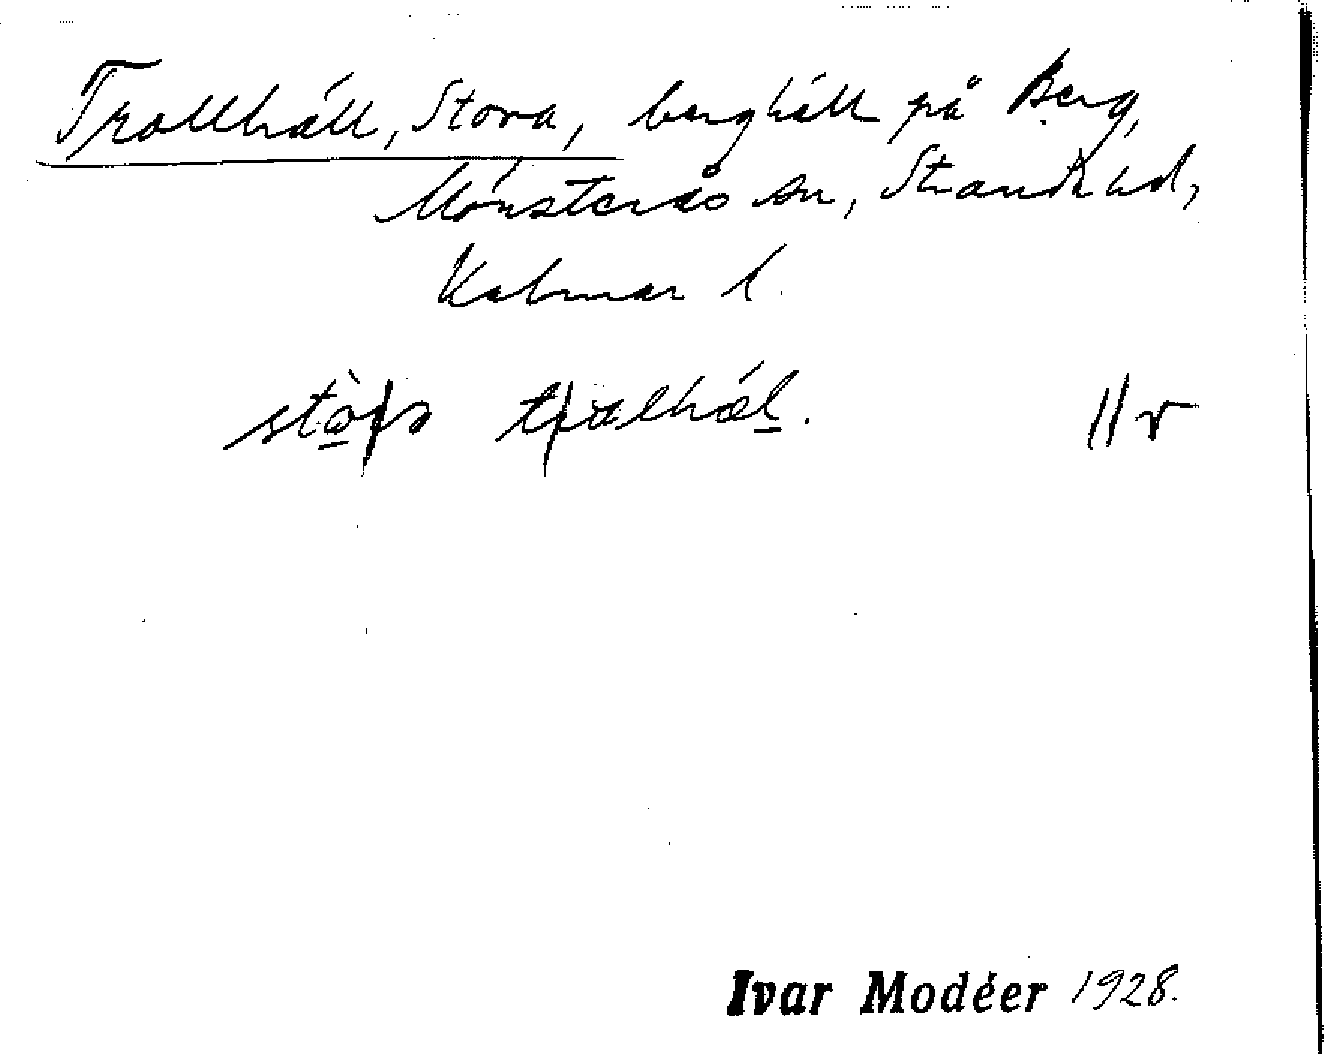 Trollhäll, Stora, berghäll på Berg,
Mönsterås sn, Stranda hd,
Kalmar l.
Ivar Modéer 1928.